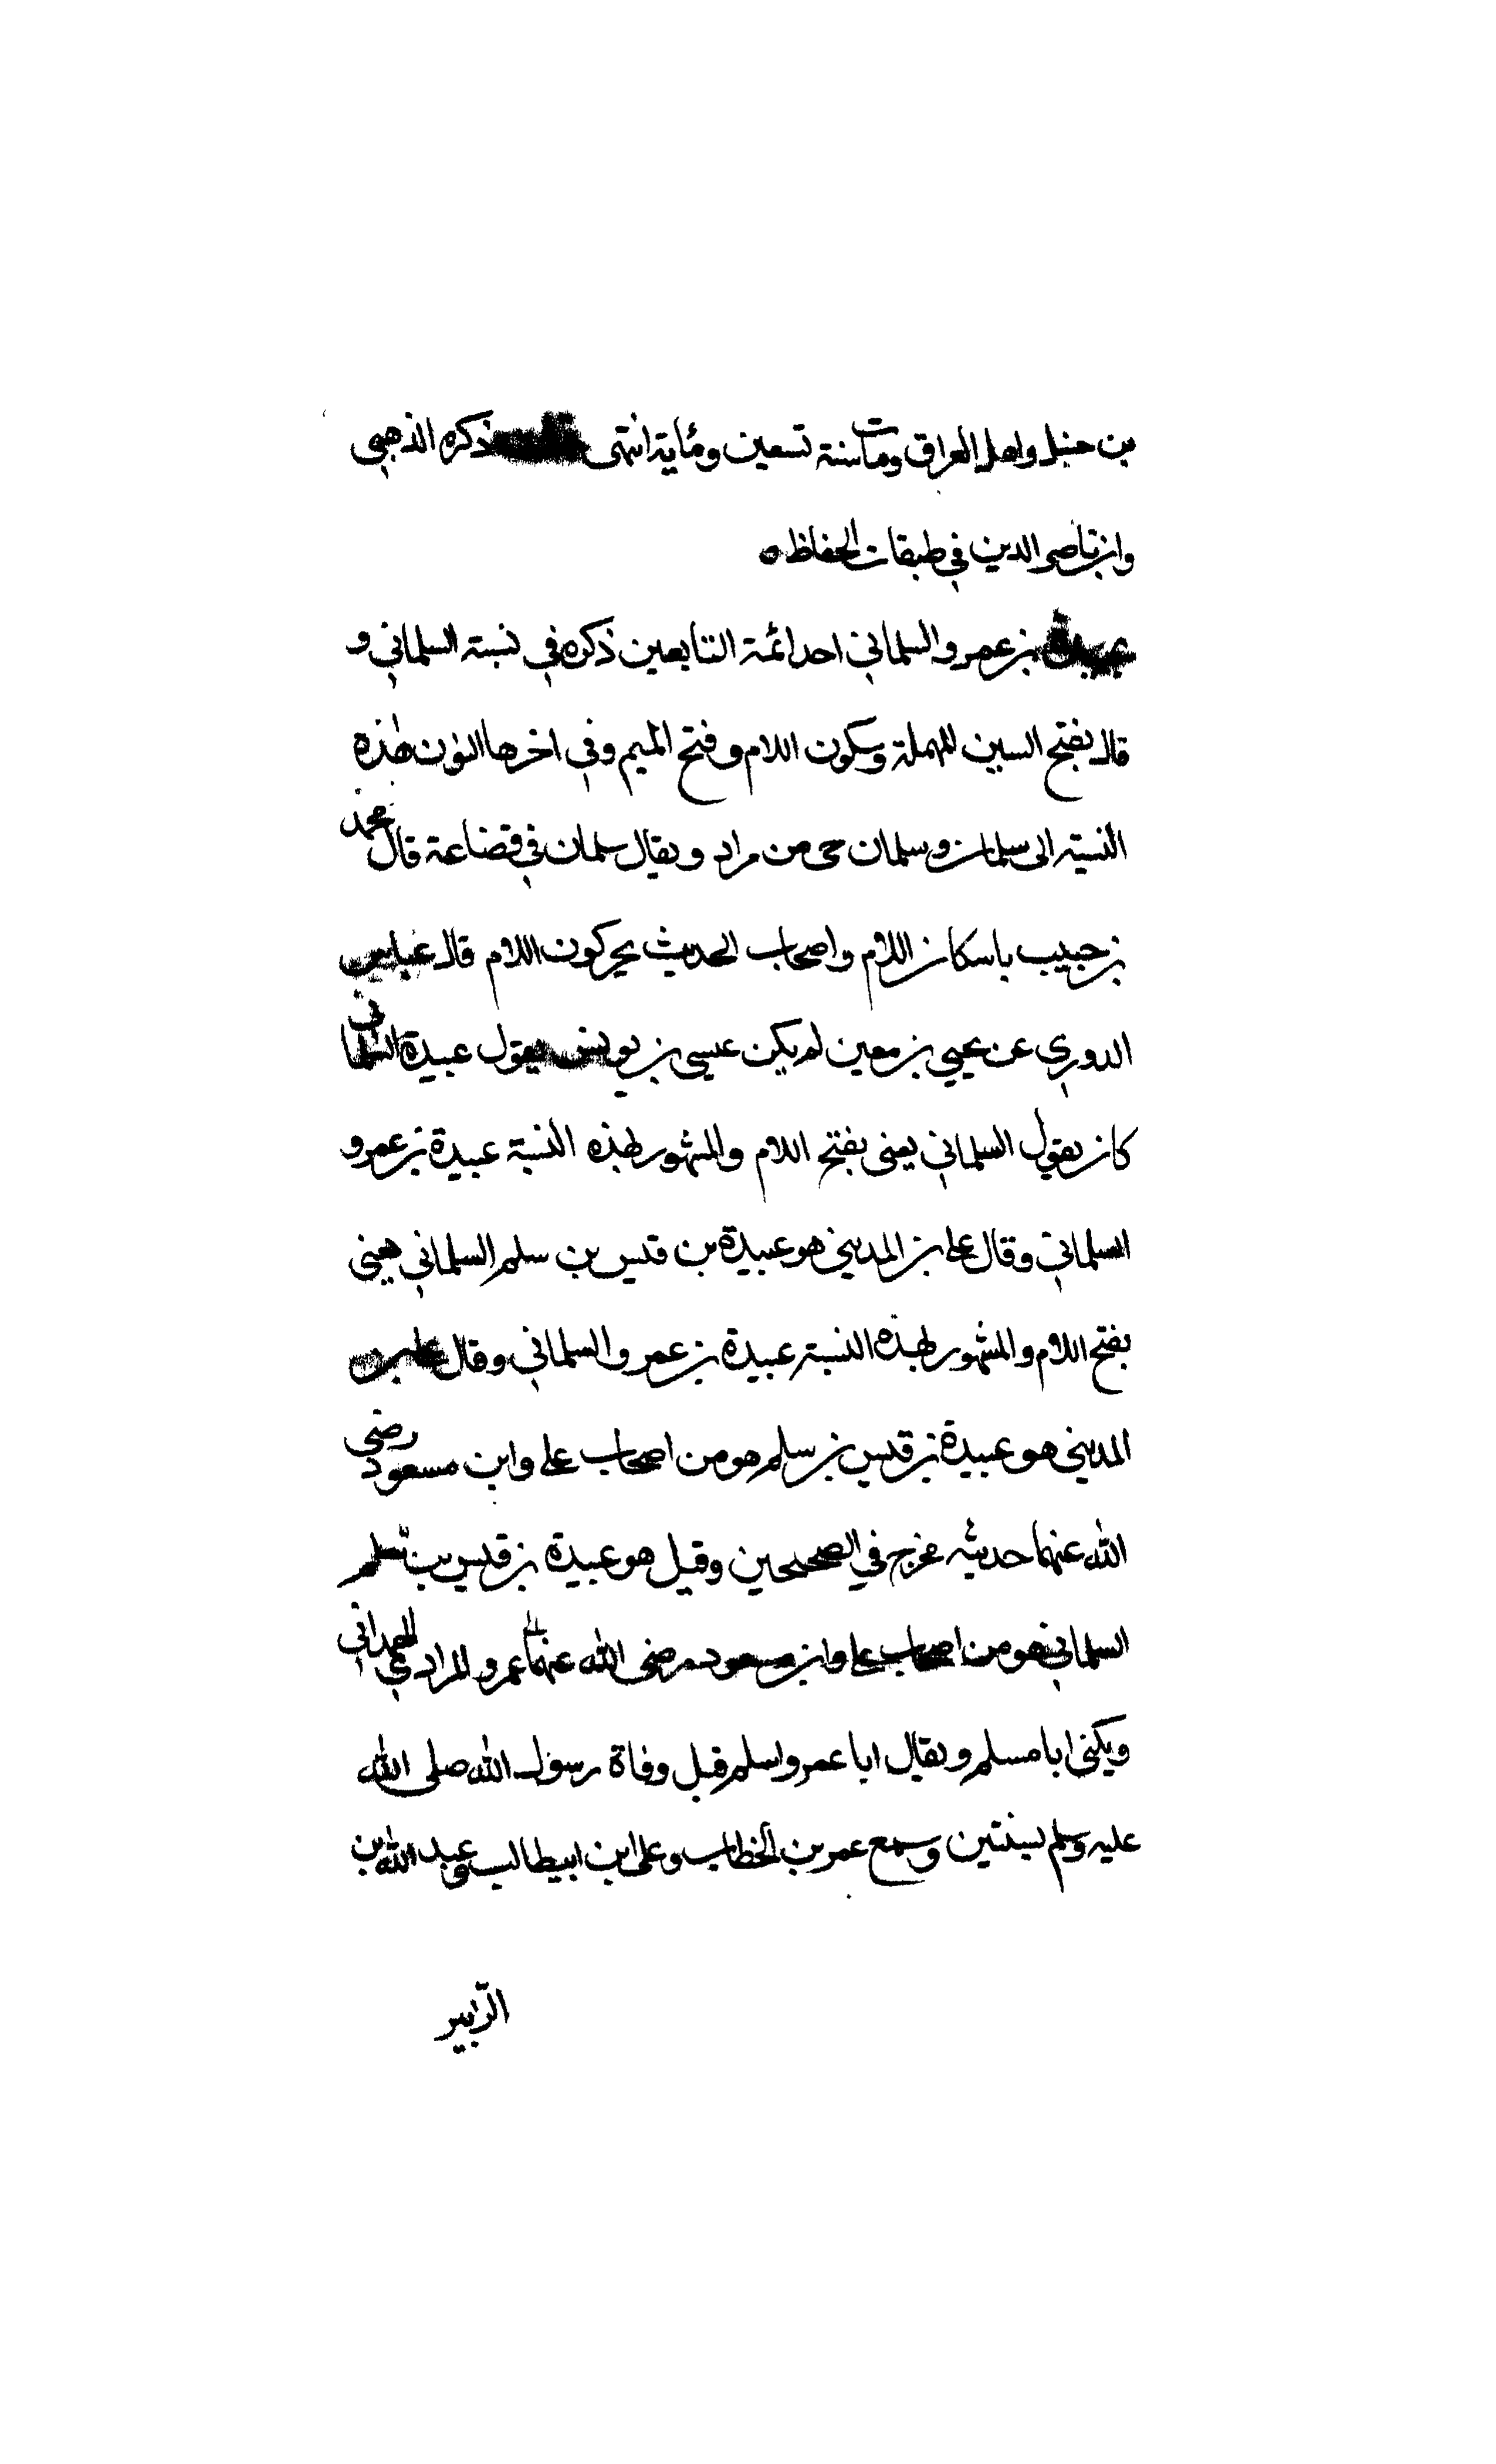 بن حنبل واهل العراق ومات سنة تسعين ومأية انتهى ذكره الذهبي
وابن ناصر الدين في طبقات الحفاظ ه
عبيدة بن عمرو السلماني احد ائمة التابعين ذكره في نسبة السلماني و
قال بفتح السين المهملة وسكون اللام وفتح الميم وفي اخرها النون هذه
النسبة الى سلمان وسلمان حي من مراد ويقال سلمان في قضاعة قال محمد
بن حبيب باسكان اللام واصحاب الحديث يحركون اللام قال عباس
الدوري عن يحيي بن معين لم يكن عيسى بن يونس يقول عبيدة السلماني
كان يقول السلماني يعنى بفتح اللام والمشهور بهذه النسبة عبيدة بن عمرو
السلماني وقال علي بن المديني هو عبيدة بن قيس بن سلم السلماني يعني
بفتح اللام والمشهور بهذه النسبة عبيدة بن عمرو السلماني وقال علي بن
المديني هو عبيدة بن قيس بن سلم هو من اصحاب علي وابن مسعود رضي
الله عنهما حديثه مخرج في الصحيحين وقيل هو عبيدة بن قيس بن سلم
السلماني هو من اصحاب علي وابن مسعود رضى الله عنهما عمرو المرادي الهمداني
ويكنى ابا مسلم ويقال ابا عمرو اسلم قبل وفاة رسول الله صلى الله
عليه وسلم بسنتين وسمع عمر بن الخطاب وعلى ابن ابيطالب وعبد الله بن
الزبير